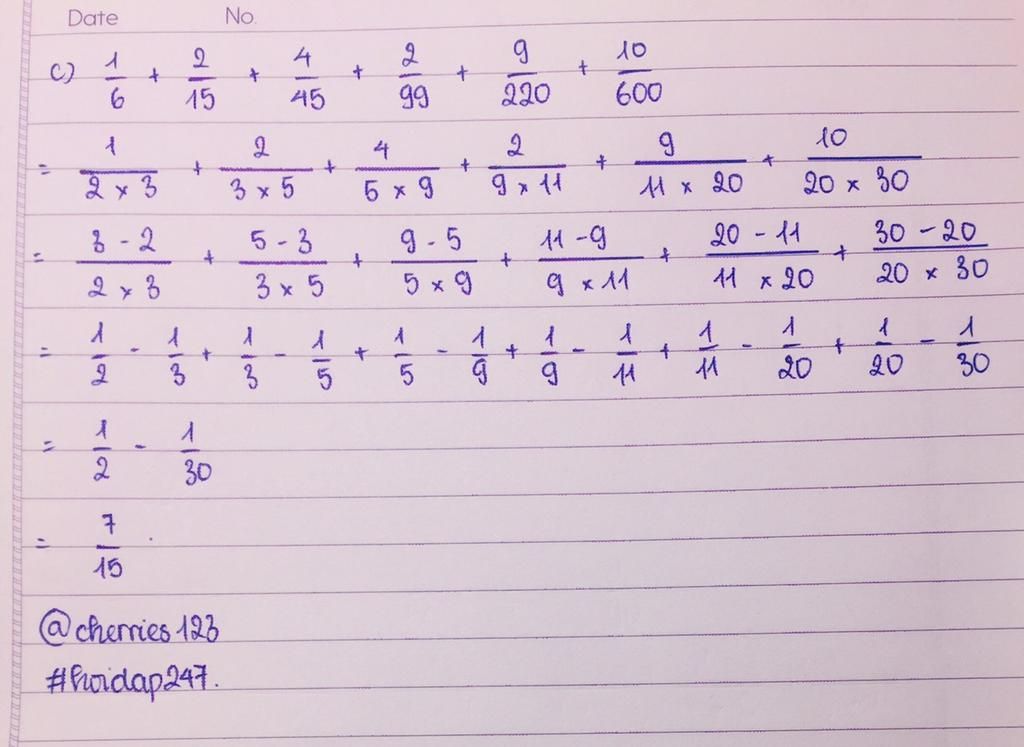 Date No.
c) 1/6 + 2/15 + 4/45 + 2/99 + 9/220 + 10/600
= 1/(2 × 3) + 2/(3 × 5) + 4/(5 × 9) + 2/(9 × 11) + 9/(11 × 20) + 10/(20 × 30)
= (3 - 2)/(2 × 3) + (5 - 3)/(3 × 5) + (9 - 5)/(5 × 9) + (11 - 9)/(9 × 11) + (20 - 11)/(11 × 20) + (30 - 20)/(20 × 30)
= 1/2 - 1/3 + 1/3 - 1/5 + 1/5 - 1/9 + 1/9 - 1/11 + 1/11 - 1/20 + 1/20 - 1/30
= 1/2 - 1/30
= 7/15 .
@cherries123
#hoidap247.